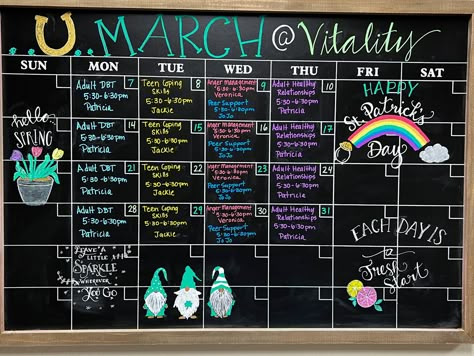 MARCH @ Vitality
SUN MON TUE WED THU FRI SAT
Adult DBT 7
5:30-6:30pm
Patricia
Teen Coping 8
Skills
5:30-6:30pm
Jackie
Anger Management 9
5:30-6:30pm
Veronica
Peer Support
5:30-6:30pm
JoJo
Adult Healthy 10
Relationships
5:30-6:30pm
Patricia
HAPPY
St. Patrick's
Day
hello
SPRING
Adult DBT 14
5:30-6:30pm
Patricia
Teen Coping 15
Skills
5:30-6:30pm
Jackie
Anger Management 16
5:30-6:30pm
Veronica
Peer Support
5:30-6:30pm
JoJo
Adult Healthy 17
Relationships
5:30-6:30pm
Patricia
Adult DBT 21
5:30-6:30pm
Patricia
Teen Coping 22
Skills
5:30-6:30pm
Jackie
Anger Management 23
5:30-6:30pm
Veronica
Peer Support
5:30-6:30pm
JoJo
Adult Healthy 24
Relationships
5:30-6:30pm
Patricia
Adult DBT 28
5:30-6:30pm
Patricia
Teen Coping 29
Skills
5:30-6:30pm
Jackie
Anger Management 30
5:30-6:30pm
Veronica
Peer Support
5:30-6:30pm
JoJo
Adult Healthy 31
Relationships
5:30-6:30pm
Patricia
EACH DAY IS
a
Fresh
Start
LEAVE A
LITTLE
SPARKLE
WHEREVER
YOU GO